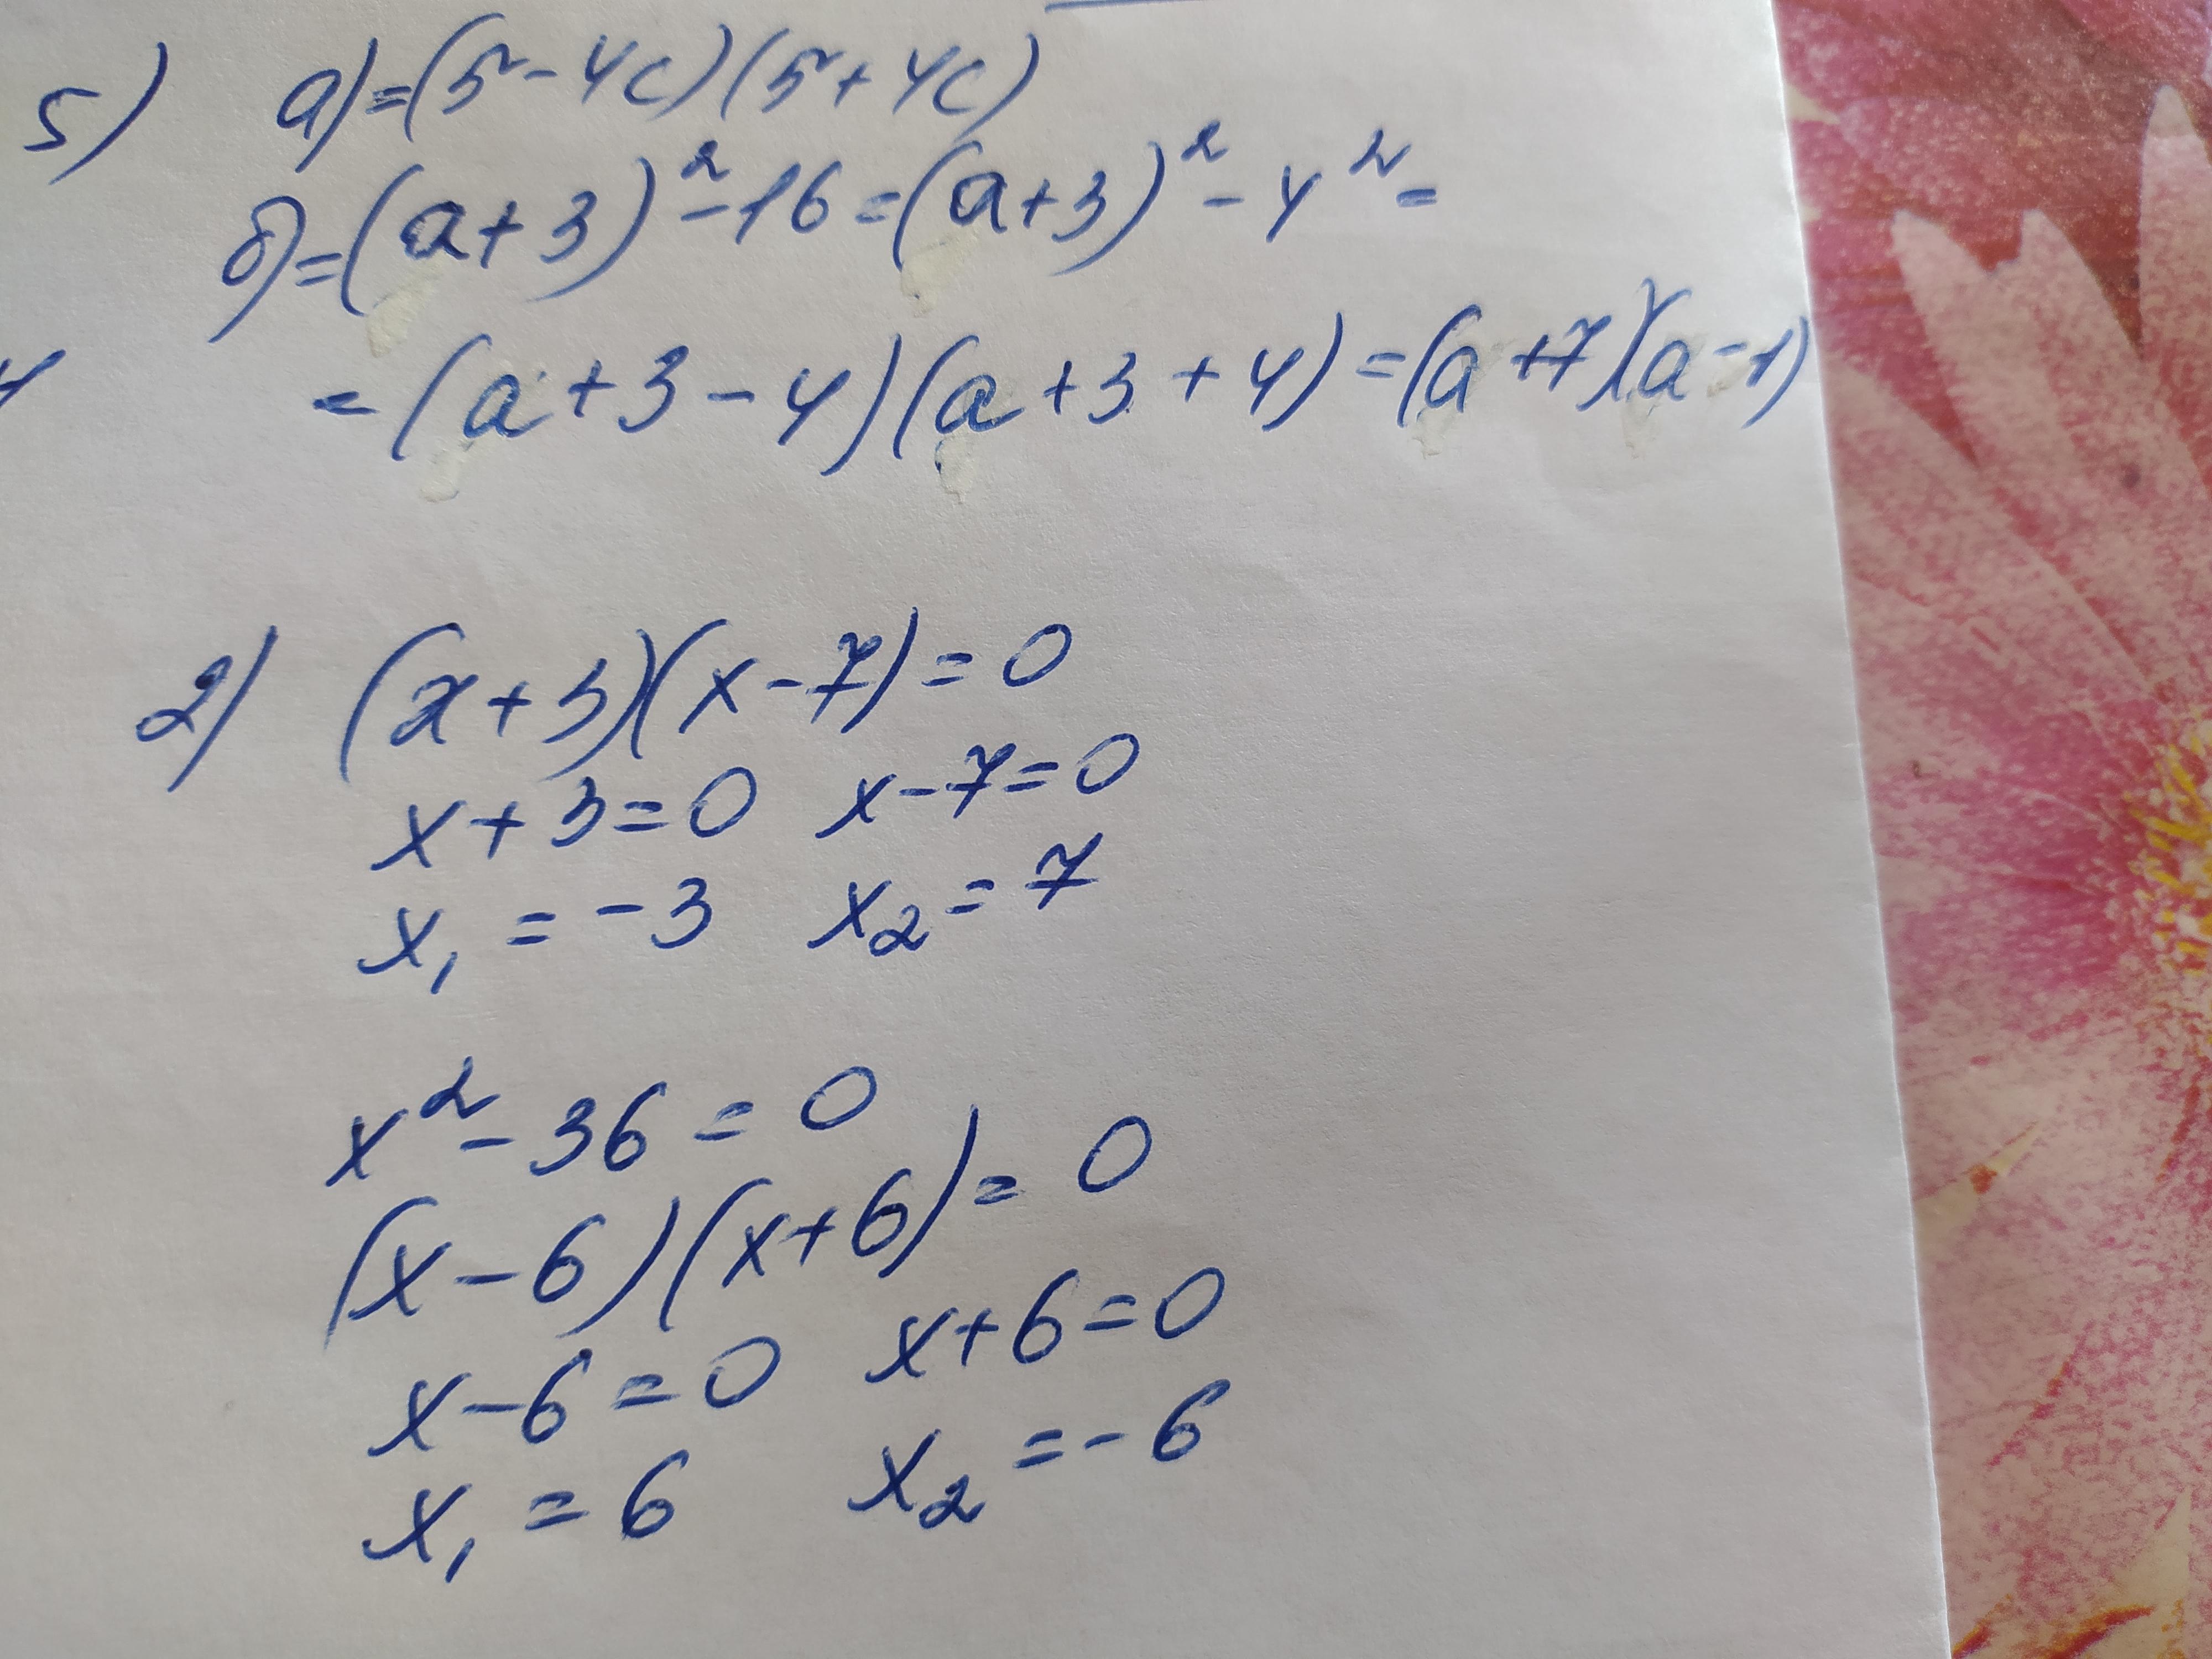 5) а)=(5-4c)(5+4c)
б)=(a+3)²-16=(a+3)²-4²=
=(a+3-4)(a+3+4)=(a+7)(a-1)
2) (x+3)(x-7)=0
x+3=0 x-7=0
x₁=-3 x₂=7
x²-36=0
(x-6)(x+6)=0
x-6=0 x+6=0
x₁=6 x₂=-6